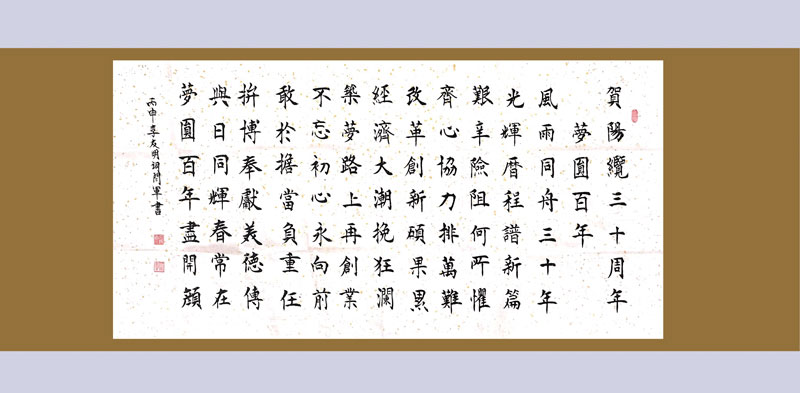 賀陽纜三十周年
夢圓百年
風雨同舟三十年
光輝曆程譜新篇
艱辛險阻何所懼
齊心協力排萬難
改革創新碩果累
經濟大潮挽狂瀾
築夢路上再創業
不忘初心永向前
敢於擔當負重任
拚博奉獻美德傳
與日同輝春常在
夢圓百年盡開顏
丙申李友明詞 軍書